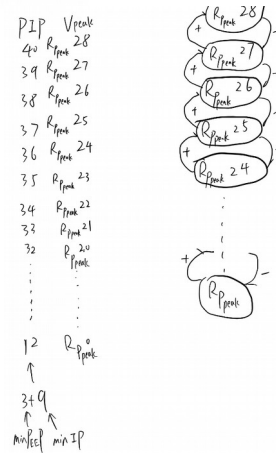 PIP Vpeak
40 R_Ppeak 28
39 R_Ppeak 27
38 R_Ppeak 26
37 R_Ppeak 25
36 R_Ppeak 24
35 R_Ppeak 23
34 R_Ppeak 22
33 R_Ppeak 21
32 R_Ppeak 20
12 R_Ppeak 0
3+9
minPEEP minIP
R_Ppeak 28
+ -
R_Ppeak 27
+ -
R_Ppeak 26
+ -
R_Ppeak 25
+ -
R_Ppeak 24
+ -
R_Ppeak